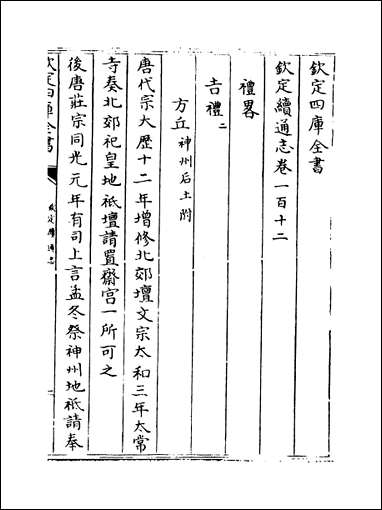 欽定四庫全書
欽定續通志卷一百十二
禮畧
吉禮二
方丘神州后土附
唐代宗大歷十二年增修北郊壇文宗太和三年太常
寺奏北郊祀皇地祗壇請置齋宫一所可之
後唐莊宗同光元年有司上言孟冬祭神州地祗請奉
欽定四庫全書
欽定續通志